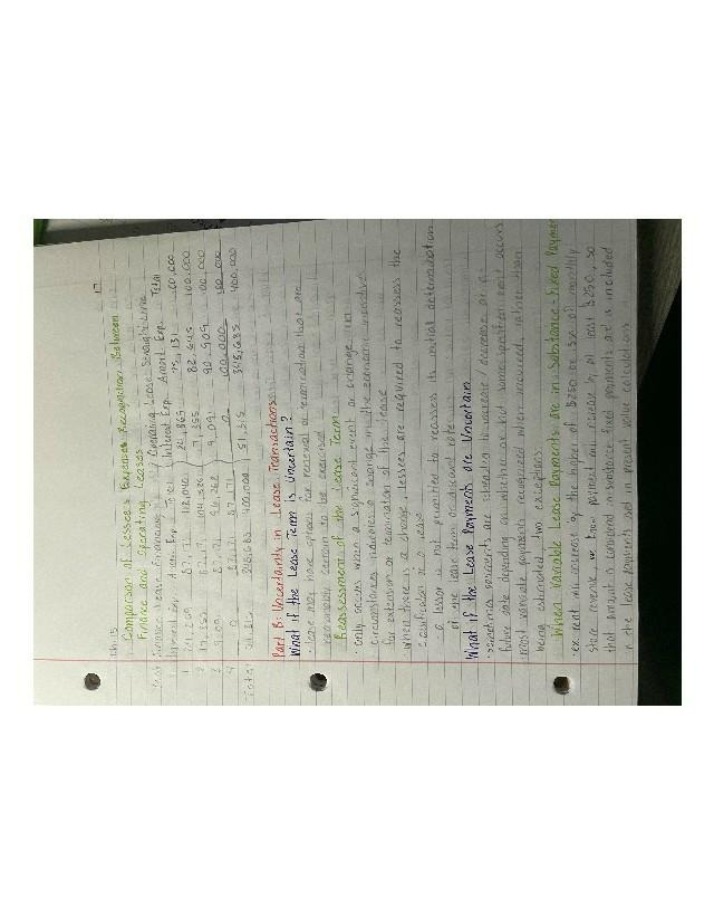 17
Ch. 15
Comparison of Lessee's Expense Recognition Between
Finance and Operating Leases
Finance Lease (Financing) Operating Lease (Straight-Line
Interest Exp. Amort. Exp. Total Interest Exp. Amort. Exp. Total
1 24,869 87,171 112,040 24,869 75,131 100,000
2 17,355 87,171 104,526 17,355 82,645 100,000
3 9,091 87,171 96,262 9,091 90,909 100,000
4 0 87,171 87,171 0 100,000 100,000
Total 51,315 348,685 400,000 51,315 348,685 400,000
Part B: Uncertainty in Lease Transactions
What if the Lease Term is Uncertain?
· lease may have options for renewal or termination that are
reasonably certain to be exercised
Reassessment of the Lease Term
· only occurs when a significant event or change in
circumstances indicates a change in the economic incentive
for extension or termination of the lease
when there is a change, lessees are required to reassess the
classification of a lease
a lessor is not permitted to reassess its initial determination
of the lease term or discount rate
What if the Lease Payments are Uncertain
· sometimes payments are scheduled to increase / decrease at a
future date depending on whether or not some specified event occurs
most variable payments recognized when incurred, rather than
being estimated, two exceptions:
When Variable Lease Payments are in Substance Fixed Payment
· ex. rent will increase by the higher of $250 or 5% of monthly
store revenue know payment will increase by at least $250, so
that amount is considered in substance fixed payments and is included
in the lease payments used in present value calculations